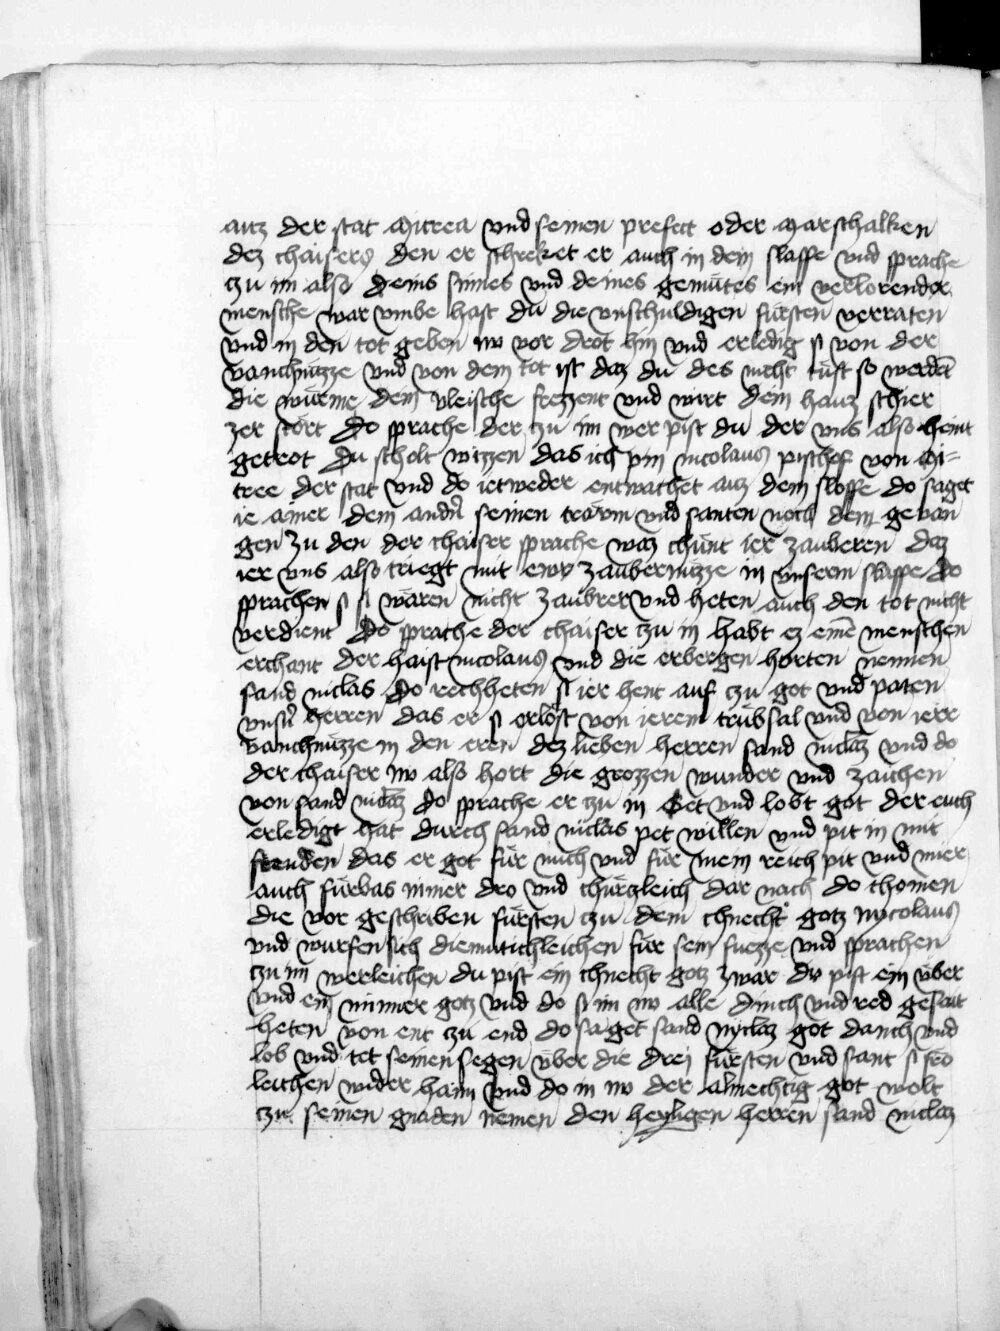 auz der stat mirrea vnd seinen prefect oder marschalken
dez chaisers den er schreket er auch in dem slaffe vnd sprache
tzu im also deins sinnes vnd deines gemütes ein verlorender
mensche war vmbe hast du die vnschuldigen fürsten verraten
vnd in den tot geben nv vor drot hin vnd erledig si von der
vanchnüzze vnd von dem tot ist daz du des nicht tüst so werdn̄
die würme dein vleische frezzent vnd wirt dein hauz schier
zer stört Do sprache der tzu im wer pist du der vns also heint
getrot Du scholt wizzen das ich pin nicolaus pischof von mi=
rree der stat vnd do ietweder entwachet auz dem sloffe do saget
ie ainer dem andn̄ seinen traum vnd santen noch dem gevan
gen zu den der chaiser sprache waz chünt ier zauberen daz
ier vns also triegt mit ewr zaubernüzze in vnserm slaffe do
sprachen si si wären nicht zaubrer vnd heten auch den tot nicht
verdient Do sprache der chaiser tzu in habt ez einē menschen
erchant der haist nicolaus vnd die erbergen horten nennen
sand niclas Do rechheten si ier hent auf tzu got vnd paten
vnsn̄ herren das er si erlöst von ierem trübsal vnd von ierr
vanchnüzze in den eren dez lieben herren sand niclaz vnd do
der chaiser nv also hort die grozzen wunder vnd zaichen
von sand niclaz Do sprache er tzu in Get vnd lobt got der euch
erledigt hat durch sand niclas pet willen vnd pit in mit
freuden das er got für mich vnd für mein reich pit vnd mier
auch fürbas nimer dro vnd chürzleich dar nach do chomen
die vor geschriben fürsten tzu dem chnecht gotz nycolaus
vnd wurfen sich diemutichleichen für sein fuezze vnd sprachen
tzu im werleichen du pist ein chnecht gotz zwar du pist ein über
vnd ein minner gotz vnd do si im nv alle dinch vnd red gesait
heten von ent tzu end do saget sand nyclaz got danch vnd
lob vnd tet seinen segen über die drei fürsten vnd sant si frö
leichen wider haim vnd do in nv der almechtig got wolt
tzu seinen gnaden nemen den heyligen herren sand niclaz